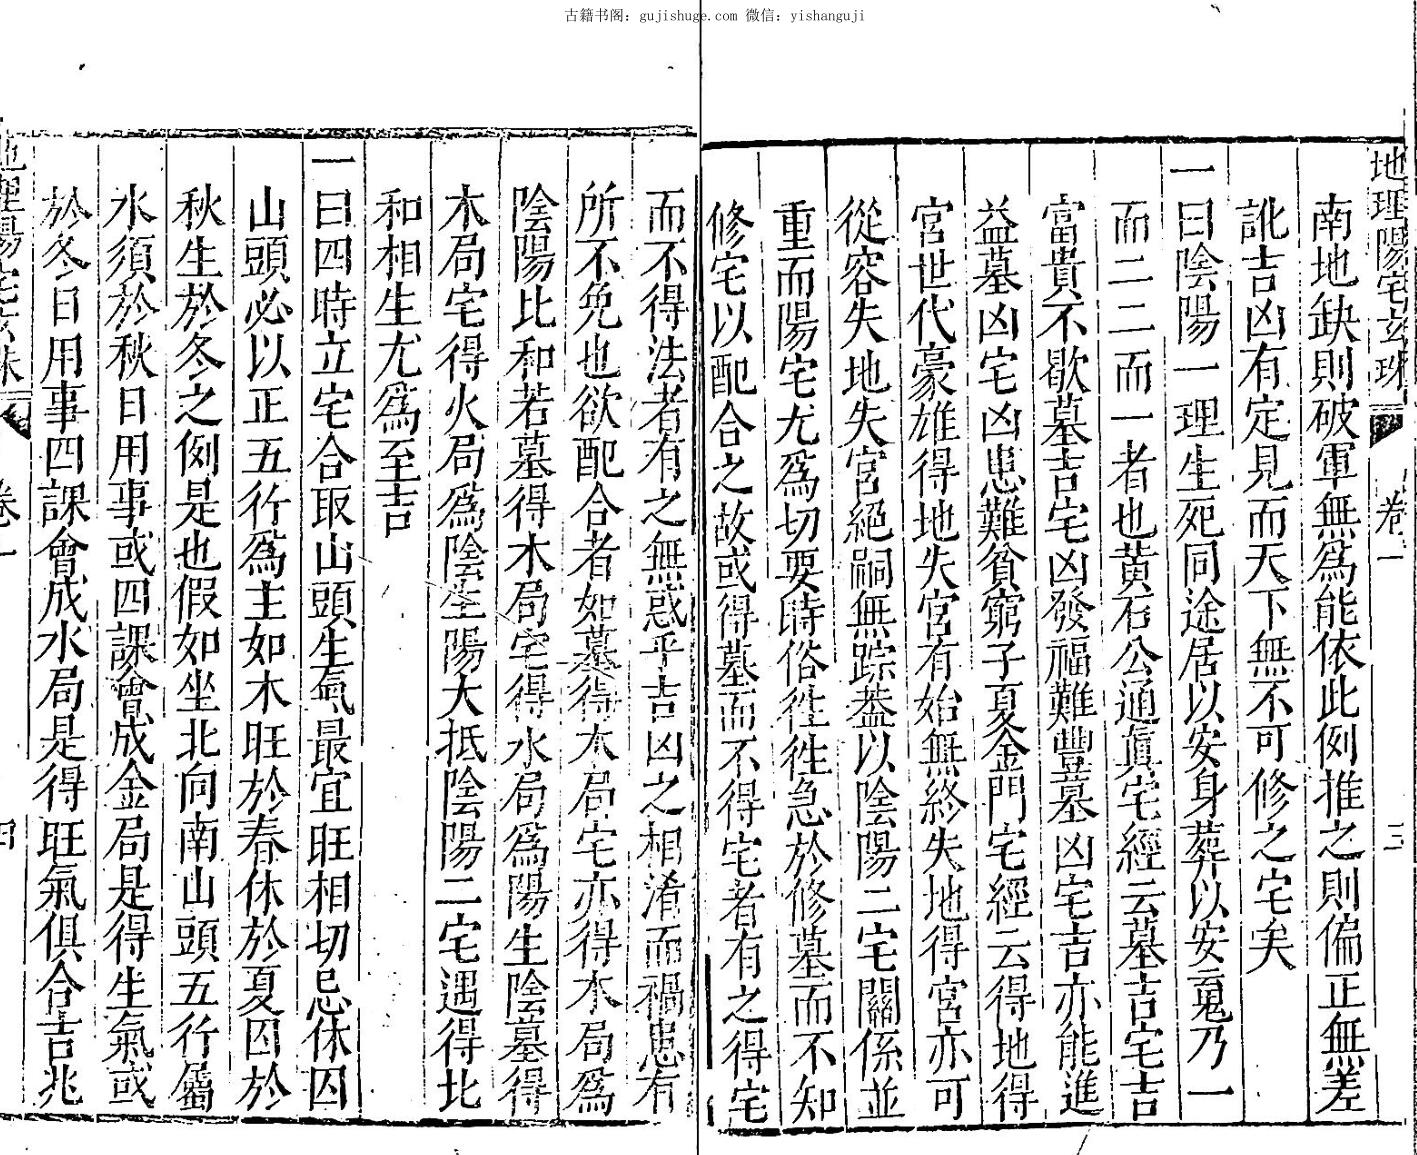 古籍书阁：gujishuge.com 微信：yishanguji
地理陽宅玄珠 卷一 三
南地缺則破軍無爲能依此例推之則偏正無差
訛吉凶有定見而天下無不可修之宅矣
一曰陰陽一理生死同途居以安身葬以安䰟乃一
而二二而一者也黄石公通眞宅經云墓吉宅吉
富貴不歇墓吉宅凶發福難豐墓凶宅吉亦能進
益墓凶宅凶患難貧窮子夏金門宅經云得地得
宮世代豪雄得地失宮有始無終失地得宮亦可
從容失地失宮絕嗣無踪葢以陰陽二宅關係並
重而陽宅尤爲切要時俗徃徃急於修墓而不知
修宅以配合之故或得墓而不得宅者有之得宅
而不得法者有之無惑乎吉凶之相淆而禍患有
所不免也欲配合者如墓得木局宅亦得木局爲
陰陽比和若墓得木局宅得水局爲陽生陰墓得
木局宅得火局爲陰生陽大抵陰陽二宅遇得比
和相生尤爲至吉
一曰四時立宅合取山頭生氣最宜旺相切忌休囚
山頭必以正五行爲主如木旺於春休於夏囚於
秋生於冬之例是也假如坐北向南山頭五行屬
水須於秋日用事或四課會成金局是得生氣或
於冬日用事四課會成水局是得旺氣俱合吉兆
地理陽宅玄珠 卷一 四